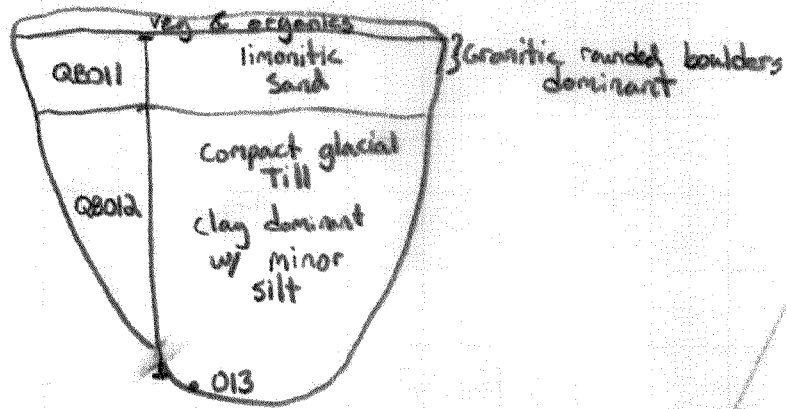 veg & organics
QB011
limonitic
Sand
Granitic rounded boulders
dominant
Compact glacial
Till
QB012
Clay dominant
w/ minor
silt
013